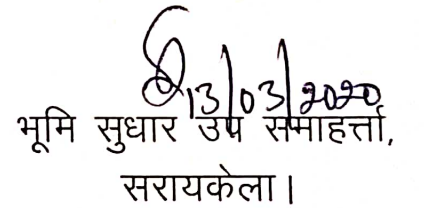 13/03/2020
भूमि सुधार उप समाहर्त्ता,
सरायकेला।